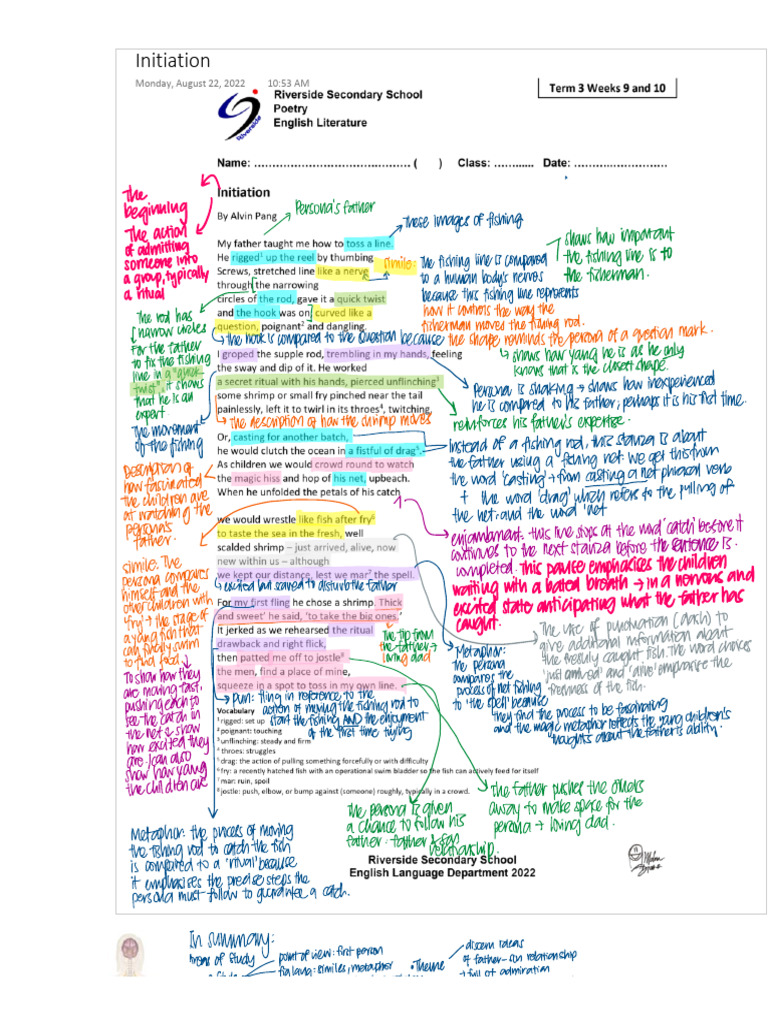 Initiation
Monday, August 22, 2022 10:53 AM
Riverside Secondary School
Poetry
English Literature
Term 3 Weeks 9 and 10
Riverside
Name: …………………………………… ( ) Class: ………… Date: ……………………
Initiation
By Alvin Pang
My father taught me how to toss a line.
He rigged¹ up the reel by thumbing
Screws, stretched line like a nerve
through the narrowing
circles of the rod, gave it a quick twist
and the hook was on, curved like a
question, poignant² and dangling.
I groped the supple rod, trembling in my hands, feeling
the sway and dip of it. He worked
a secret ritual with his hands, pierced unflinching³
some shrimp or small fry pinched near the tail
painlessly, left it to twirl in its throes⁴, twitching.
Or, casting for another batch,
he would clutch the ocean in a fistful of drag⁵.
As children we would crowd round to watch
the magic hiss and hop of his net, upbeach.
When he unfolded the petals of his catch
we would wrestle like fish after fry⁶
to taste the sea in the fresh, well
scalded shrimp – just arrived, alive, now
new within us – although
we kept our distance, lest we mar⁷ the spell.
For my first fling he chose a shrimp. Thick
and sweet' he said, 'to take the big ones.'
It jerked as we rehearsed the ritual
drawback and right flick,
then patted me off to jostle⁸
the men, find a place of mine,
squeeze in a spot to toss in my own line.
Vocabulary
¹ rigged: set up
² poignant: touching
³ unflinching: steady and firm
⁴ throes: struggles
⁵ drag: the action of pulling something forcefully or with difficulty
⁶ fry: a recently hatched fish with an operational swim bladder so the fish can actively feed for itself
⁷ mar: ruin, spoil
⁸ jostle: push, elbow, or bump against (someone) roughly, typically in a crowd.
Riverside Secondary School
English Language Department 2022
The
beginning
The action
of admitting
someone into
a group, typically
a ritual
Persona's father
These images of fishing
simile:
The fishing line is compared
to a human body's nerves
because this fishing line represents
how it controls the way the
fisherman moves the fishing rod.
shows how important
the fishing line is to
the fisherman.
The rod has
narrow circles
for the father
to fix the fishing
line in a "quick
twist", it shows
that he is an
expert.
The hook is compared to the question because the shape reminds the persona of a question mark.
shows how young he is as he only
knows that is the closest shape.
Persona is shaking → shows how inexperienced
he is compared to his father; perhaps it is his first time.
reinforces his father's expertise.
The movement
of the fishing
The description of how the shrimp moves
Instead of a fishing rod, this stanza is about
the father using a fishing net: we get this from
the word 'casting' → from casting a net phrasal verb
+ the word 'drag' which refers to the pulling of
the net and the word 'net'
Description of
how fascinated
the children are
at watching the
persona's
father.
enjambment: this line stops at the word 'catch' before it
continues to the next stanza before the sentence is
completed. This pause emphasises the children
waiting with a bated breath → in a nervous and
excited state anticipating what the father has
caught.
simile: The
persona compares
himself and the
other children with
'fry' → the stage of
a young fish that
can freely swim
to find food →
To show how they
are moving fast,
pushing each to
see the catch in
the net & show
how excited they
are. I can also
show how young
the children are
excited but scared to disturb the father
The tip from
the father →
loving dad
The use of punctuation (dash) to
give additional information about
the freshly caught fish. The word choices
'just arrived' and 'alive' emphasise the
freshness of the fish.
Metaphor:
the persona
compares the
process of net fishing
to 'the spell' because
they find the process to be fascinating
and the magic metaphor reflects the young children's
thoughts about the father's ability.
Pun: fling in reference to the
action of moving the fishing rod to
start the fishing AND the enjoyment
of the first time trying
The persona is given
a chance to follow his
father. father & son
relationship.
The father pushes the others
away to make space for the
persona → loving dad.
Metaphor: the process of moving
the fishing rod to catch the fish
is compared to a 'ritual' because
it emphasises the precise steps the
persona must follow to guarantee a catch.
In summary:
Areas of study
point of view: first person
fig lang: similes, metaphor
• Theme
discern ideas
of father-son relationship
→ full of admiration